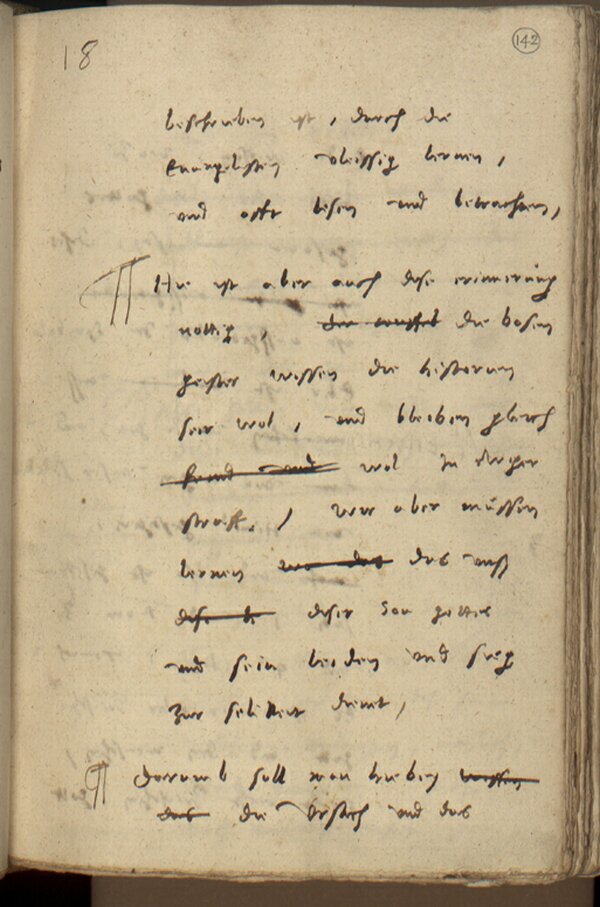 18
142
beschrieben ist, durch die
Euangelisten vleissig lernen,
und offt lesen und betrachten,
Hie ist aber auch dise erinnerung
nottig, der teuffel die bosen
geister wissen die historien
seer wol, und bleiben gleich
feind und wol in ewiger
straff, wir aber müssen
lernen das unß
dise diser Son gottes
und sein leiden und sieg
zur selikeit dienet,
Darumb soll man hiebey wissen
das die Ursach und das